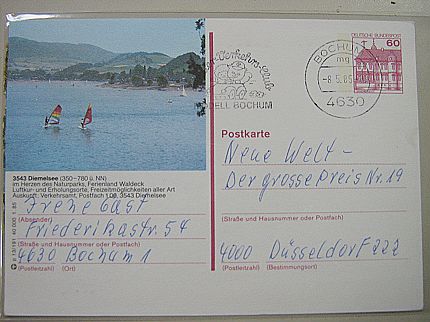 3543 Diemelsee (350-780 ü. NN)
im Herzen des Naturparks, Ferienland Waldeck
Luftkur- und Erholungsorte, Freizeitmöglichkeiten aller Art
Auskunft: Verkehrsamt, Postfach 100, 3543 Diemelsee
Frehe Gast
(Absender)
Friederikastr. 54
(Straße und Hausnummer oder Postfach)
4630 Bochum 1
(Postleitzahl) (Ort)
Verkehrs-Club
DELL BOCHUM
BOCHUM
mg
4630
DEUTSCHE BUNDESPOST
60
Postkarte
Neue Welt -
Der grosse Preis Nr. 19
(Straße und Hausnummer oder Postfach)
4000 Düsseldorf 222
(Postleitzahl) (Bestimmungsort)